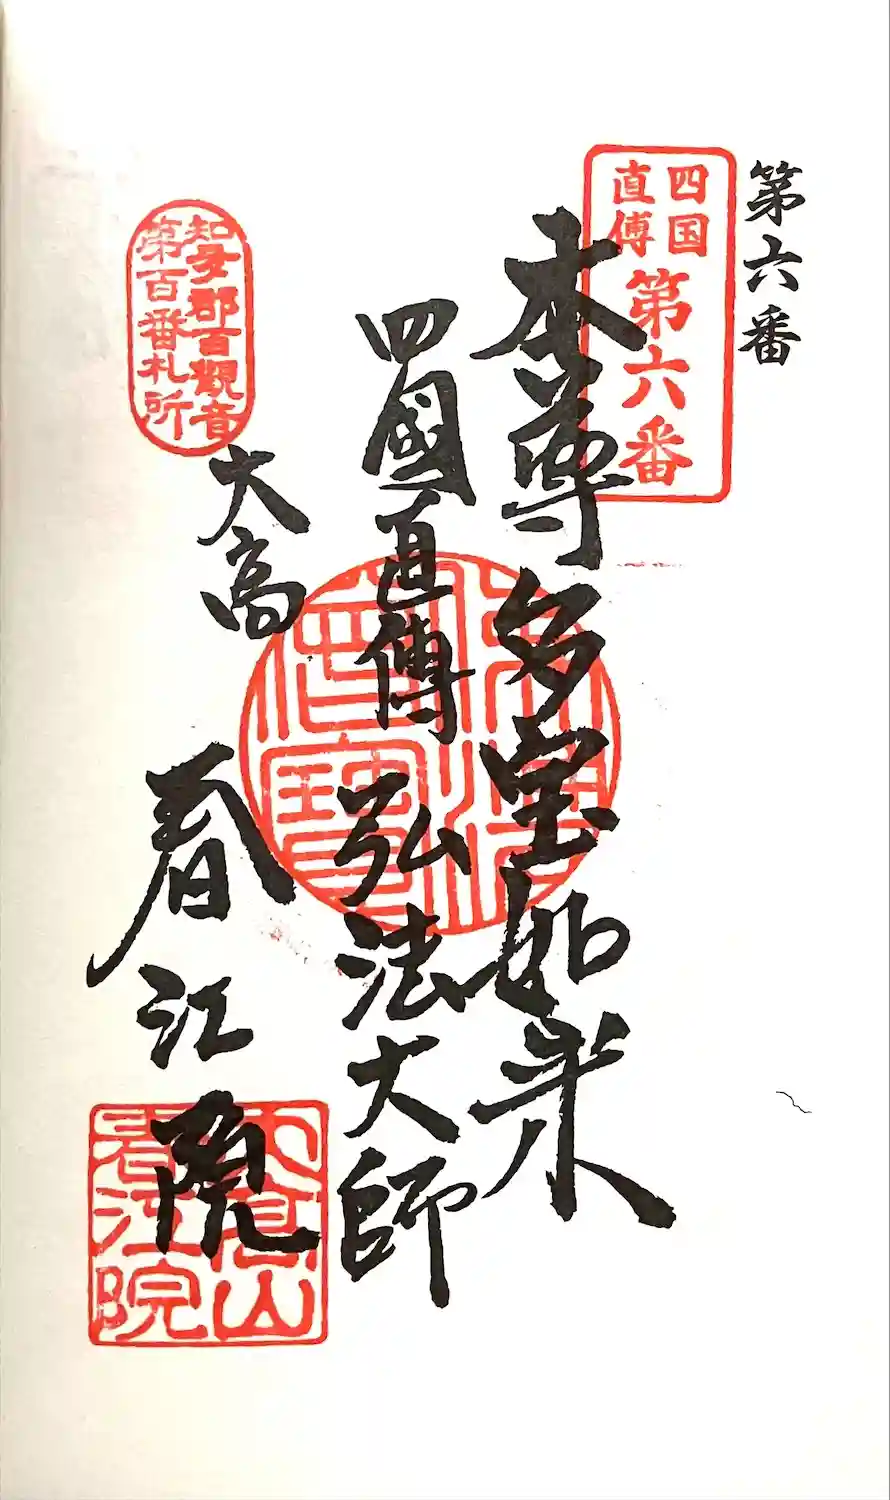 第六番
四国
直傅
第六番
本尊多宝如来
四國直傳
弘法大師
知多郡百観音
第百番札所
大高
春江院
大高山
春江院